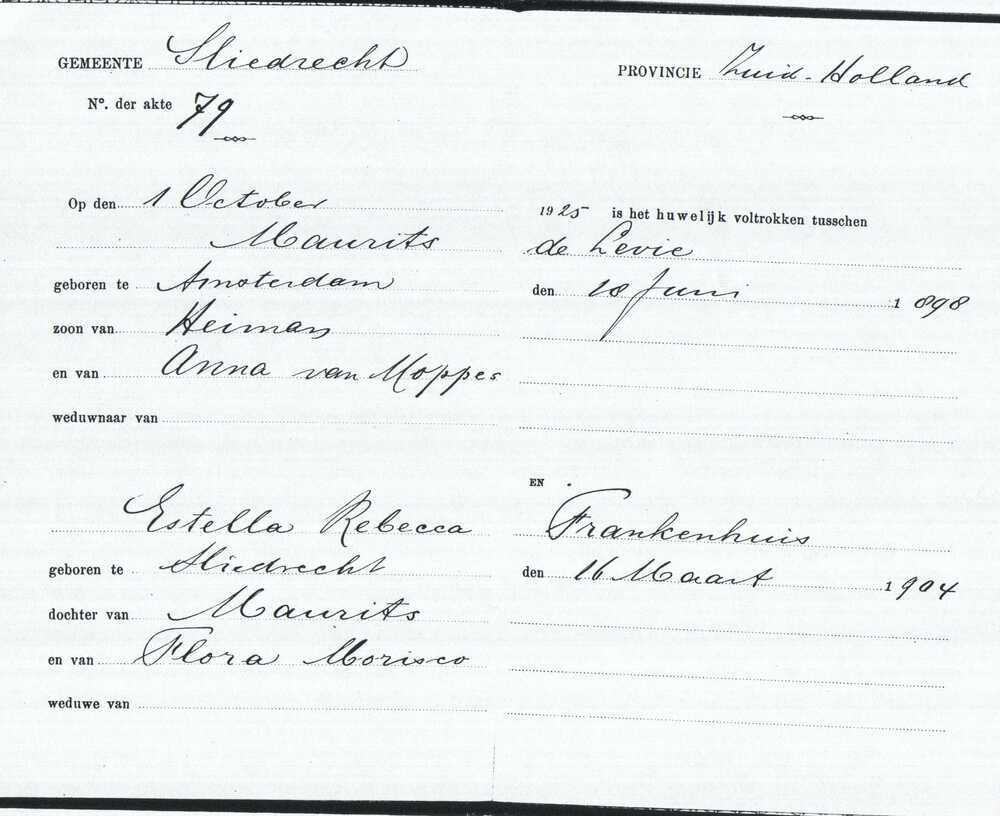 GEMEENTE Sliedrecht PROVINCIE Zuid-Holland
N°. der akte 79
Op den 1 October 1925 is het huwelijk voltrokken tusschen
Maurits de Levie
geboren te Amsterdam den 18 Juni 1898
zoon van Heiman
en van Anna van Moppes
weduwnaar van
EN
Estella Rebecca Frankenhuis
geboren te Sliedrecht den 16 Maart 1904
dochter van Maurits
en van Flora Morisco
weduwe van